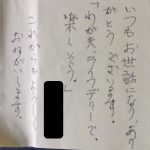 いつもお世話になり、あり
がとうございます。
「わが夫、ライブラリーで。
楽しそう。」
これからもよろしく
おねがいします。